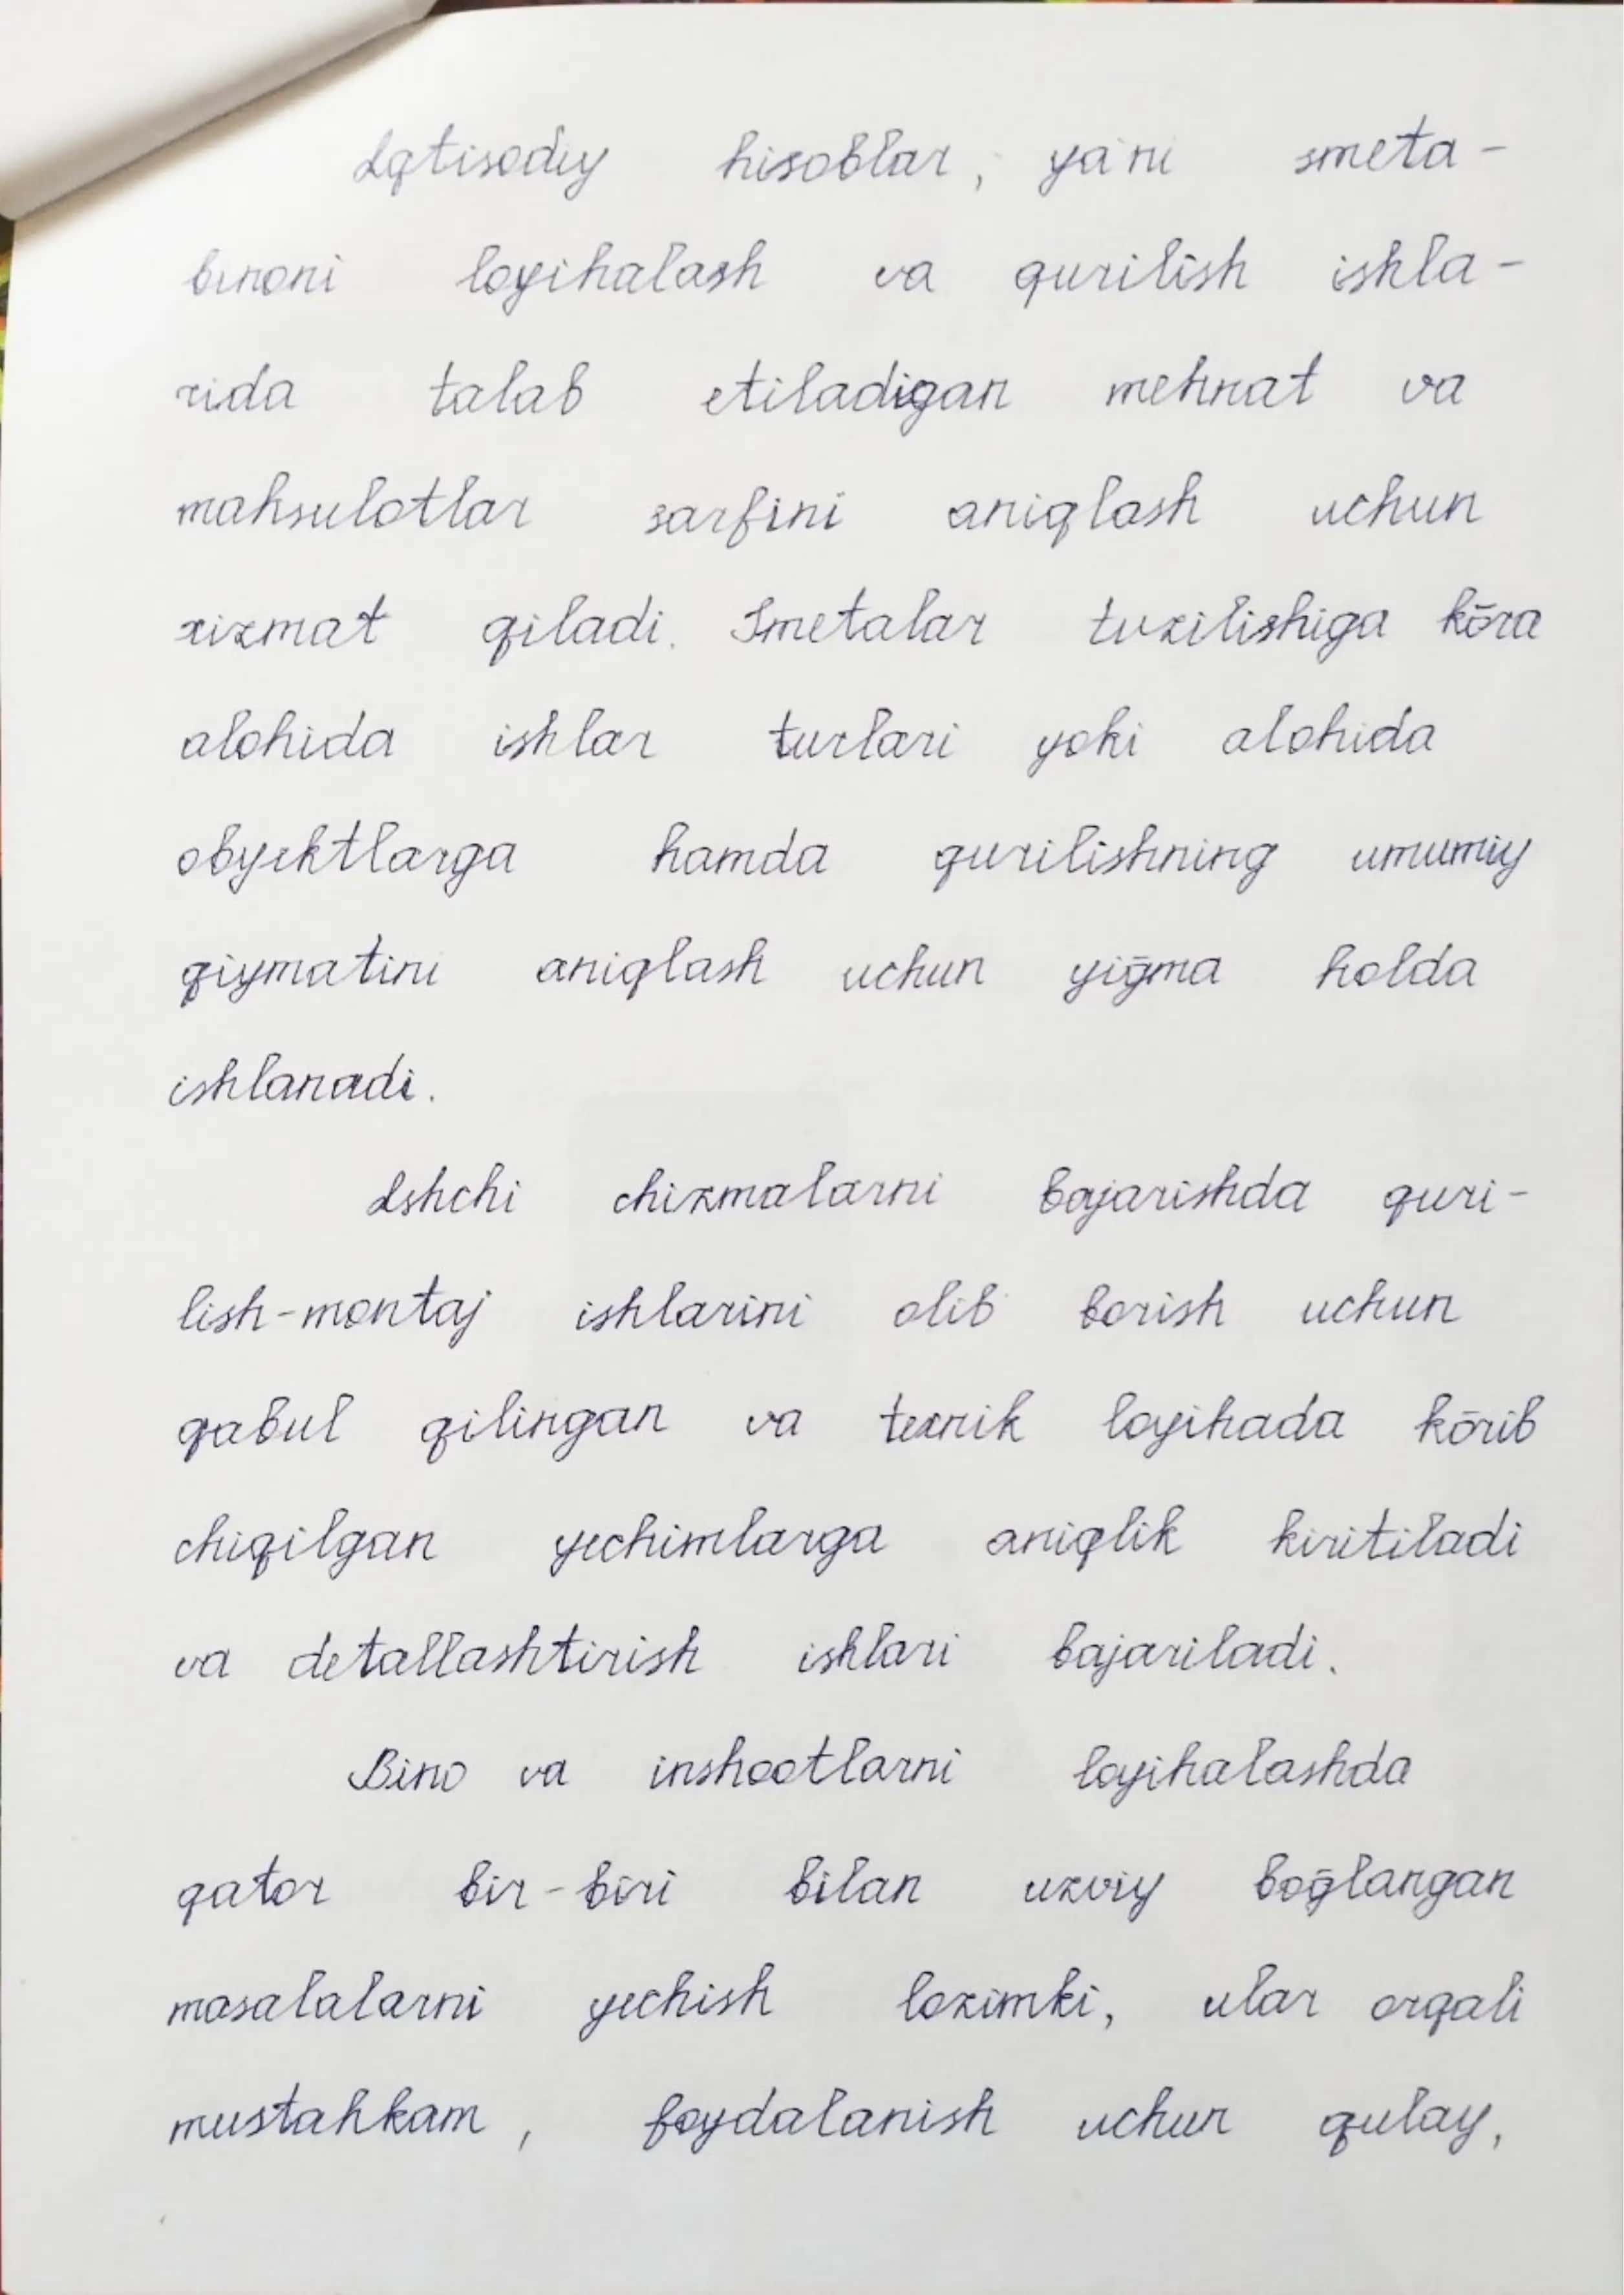 Iqtisodiy hisoblar, ya'ni smeta-
binoni loyihalash va qurilish ishla-
rida talab etiladigan mehnat va
mahsulotlar sarfini aniqlash uchun
xizmat qiladi. Smetalar tuzilishiga kōra
alohida ishlar turlari yoki alohida
obyektlarga hamda qurilishning umumiy
qiymatini aniqlash uchun yiḡma holda
ishlanadi.
Ishchi chizmalarni bajarishda quri-
lish-montaj ishlarini olib borish uchun
qabul qilingan va texnik loyihada kōrib
chiqilgan yechimlarga aniqlik kiritiladi
va detallashtirish ishlari bajariladi.
Bino va inshootlarni loyihalashda
qator bir-biri bilan uzviy boḡlangan
masalalarni yechish lozimki, ular orqali
mustahkam, foydalanish uchun qulay,